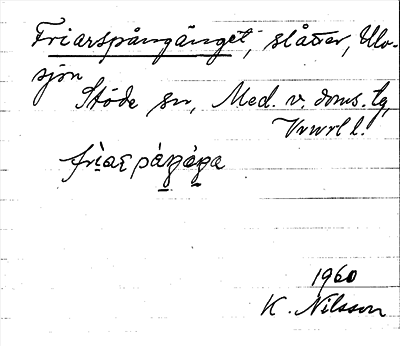 Friarspångänget, slåtter, Ulv-
sjön
Stöde sn, Med. v. doms. tg,
Vrwrl l.
frìaspágága
1960
K. Nilsson